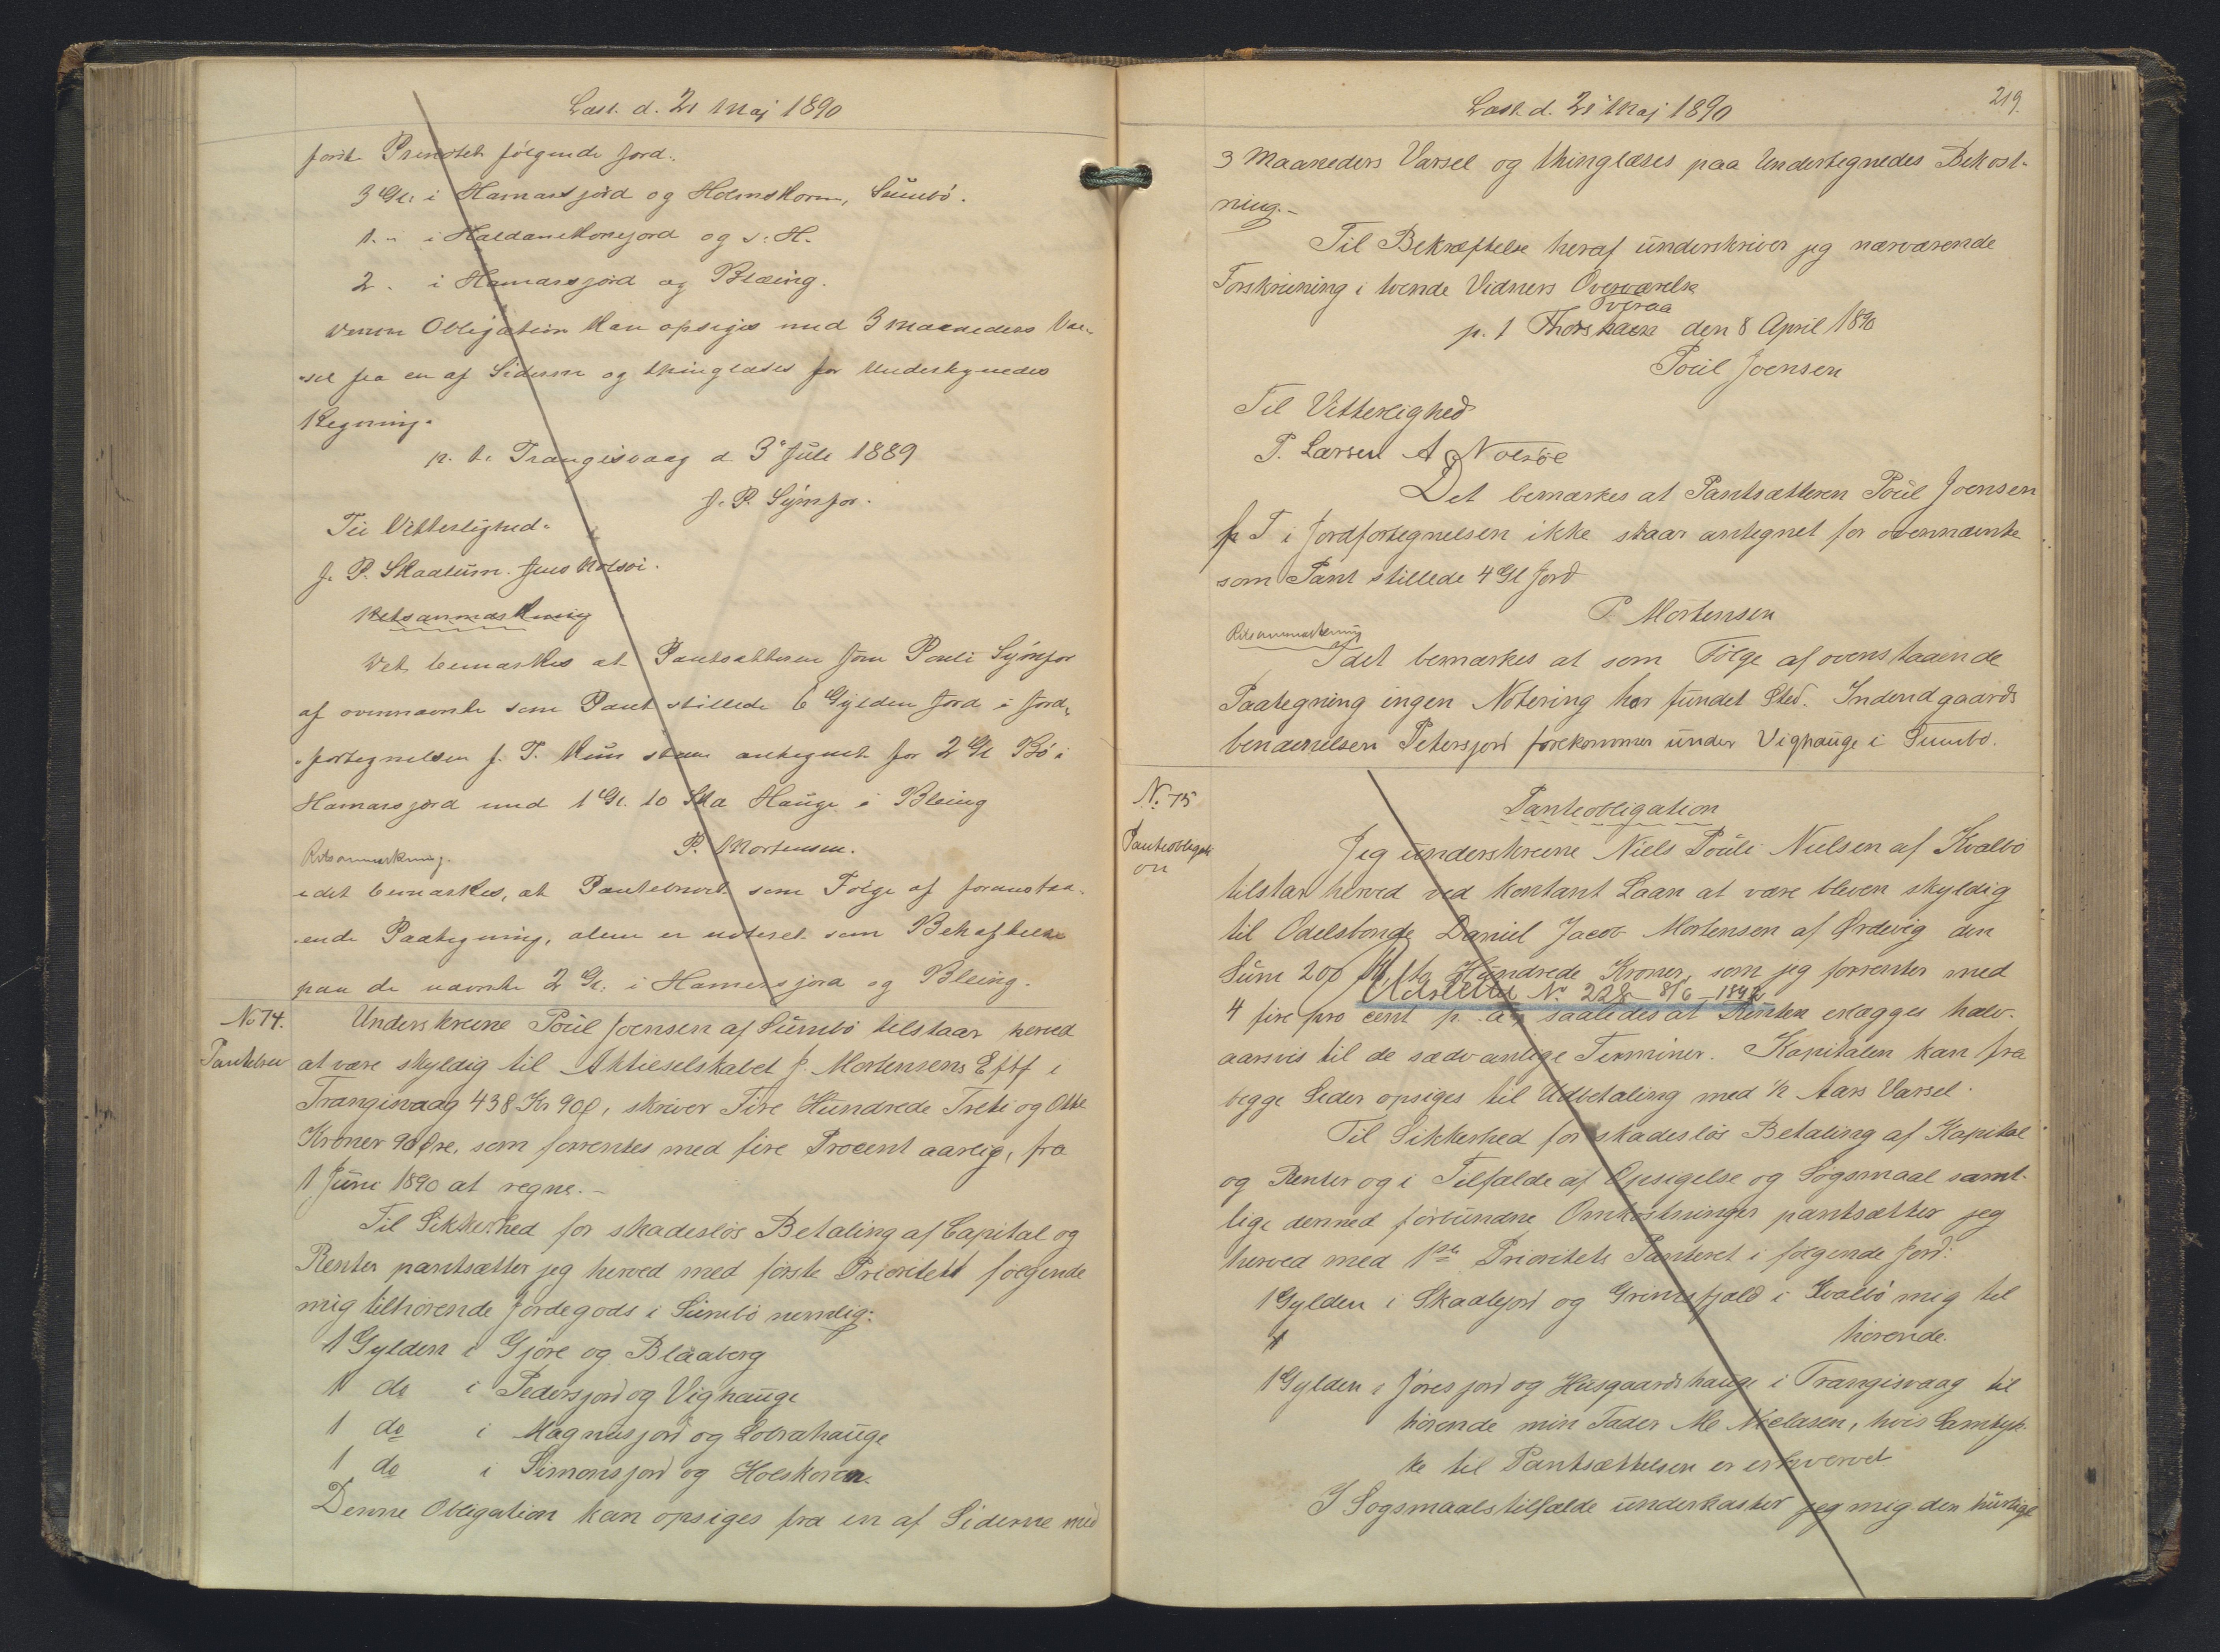 Læst. d. 21 Maj 1890
første Prioritet følgende Jord.
3 Gl. i Hamarsjord og Holmskorn, Sumbø.
1. " i Haldanskonejord og s: H.
2. i Hamarsjord og Blæing.
Denne Obligation kan opsiges med 3 Maaneders Var-
sel fra en af Siderne og thinglæses for Undertegnedes
Regning.
p. t. Trangisvaag d. 3 Juli 1889
J. P. Symfor.
Til Vitterlighed.
J. P. Skaalum. Jens Nolsøi.
Retsanmærkning
Det bemærkes at Pantsætteren Jon Pouli Symfor
af ovennævnte som Pant stillede 6 Gylden Jord i Jord-
fortegnelsen p. T. kun staar antegnet for 2 Gl Bø i
Hamarsjord med 1 Gl. 10 Sk Hauge i Bleing
P. Mortensen.
Retsanmærkning.
idet bemærkes, at Pantebrevet som Følge af foranstaa-
ende Paategning, alene er noteret som Behæftelse
paa de nævnte 2 Gl. i Hamersjord og Bleing.
No 74.
Pantebrev
Underskrevne Poul Joensen af Sumbø tilstaar herved
at være skyldig til Aktieselskabet J. Mortensens Eftf i
Trangisvaag 438 Kr 90 Ø, skriver Fire Hundrede Treti og Otte
Kroner 90 Øre, som forrentes med fire Procent aarlig, fra
1 Juni 1890 at regne.-
Til Sikkerhed for skadesløs Betaling af Capital og
Renter pantsætter jeg herved med første Prioritett følgende
mig tilhørende Jordegods i Sumbø nemlig:
1 Gylden i Gjøre og Blaaberg
1 do i Pedersjord og Vighauge
1 do i Magnusjord og Lobrahauge
1 do i Simonsjord og Holskoren.
Denne Obligation kan opsiges fra en af Siderne med
Læst. d. 21 Maj 1890
219.
3 Maaneders Varsel og thinglæses paa Undertegnedes Bekost-
ning.-
Til Bekræftelse heraf underskriver jeg nærværende
Forskrivning i tvende Vidners Overværelse
Tveraa
p. t Thorshavn den 8 April 1890
Poul Joensen
Til Vitterlighed
P. Larsen A Nolsøe
Det bemærkes at Pantsætteren Poul Joensen
p T i Jordfortegnelsen ikke staar antegnet for ovennævnte
som Pant stillede 4 Gl Jord
P Mortensen
Retsanmærkning
Idet bemærkes at som Følge af ovenstaaende
Paategning ingen Notering har fundet Sted. Indendgaards
benævnelsen Petersjord forekommer under Vighauge i Sumbø.
No. 75
Panteobligati
on
Panteobligation
Jeg underskrevne Niels Pouli Nielsen af Kvalbø
tilstar herved ved kontant Laan at være bleven skyldig
til Odelsbonde Daniel Jacob Mortensen af Ørdevig den
Sum 200 Kr, to Hundrede Kroner, som jeg forrenter med
Udslettet No. 228 - 8/6 - 1892
4 fire pro cent p. a., saaledes at Renten erlægges halv-
aarsvis til de sædvanlige Terminer. Kapitalen kan fra
begge Sider opsiges til Udbetaling med ½ Aars Varsel.
Til Sikkerhed for skadesløs Betaling af Kapital
og Renter og i Tilfælde af Opsigelse og Søgsmaal samt-
lige dermed forbundne Omkostninger pantsætter jeg
herved med 1ste Prioritets Panteret i følgende Jord:
1 Gylden i Skaalejord og Grimsfjæld i Kvalbø mig til
hørende.
1 Gylden i Jores jord og Husgaardshauge i Trangisvaag til
hørende min Fader Me Nielasen, hvis Samtyk-
ke til Pantsættelsen er erhvervet
I Søgsmaalstilfælde underkaster jeg mig den hurtige